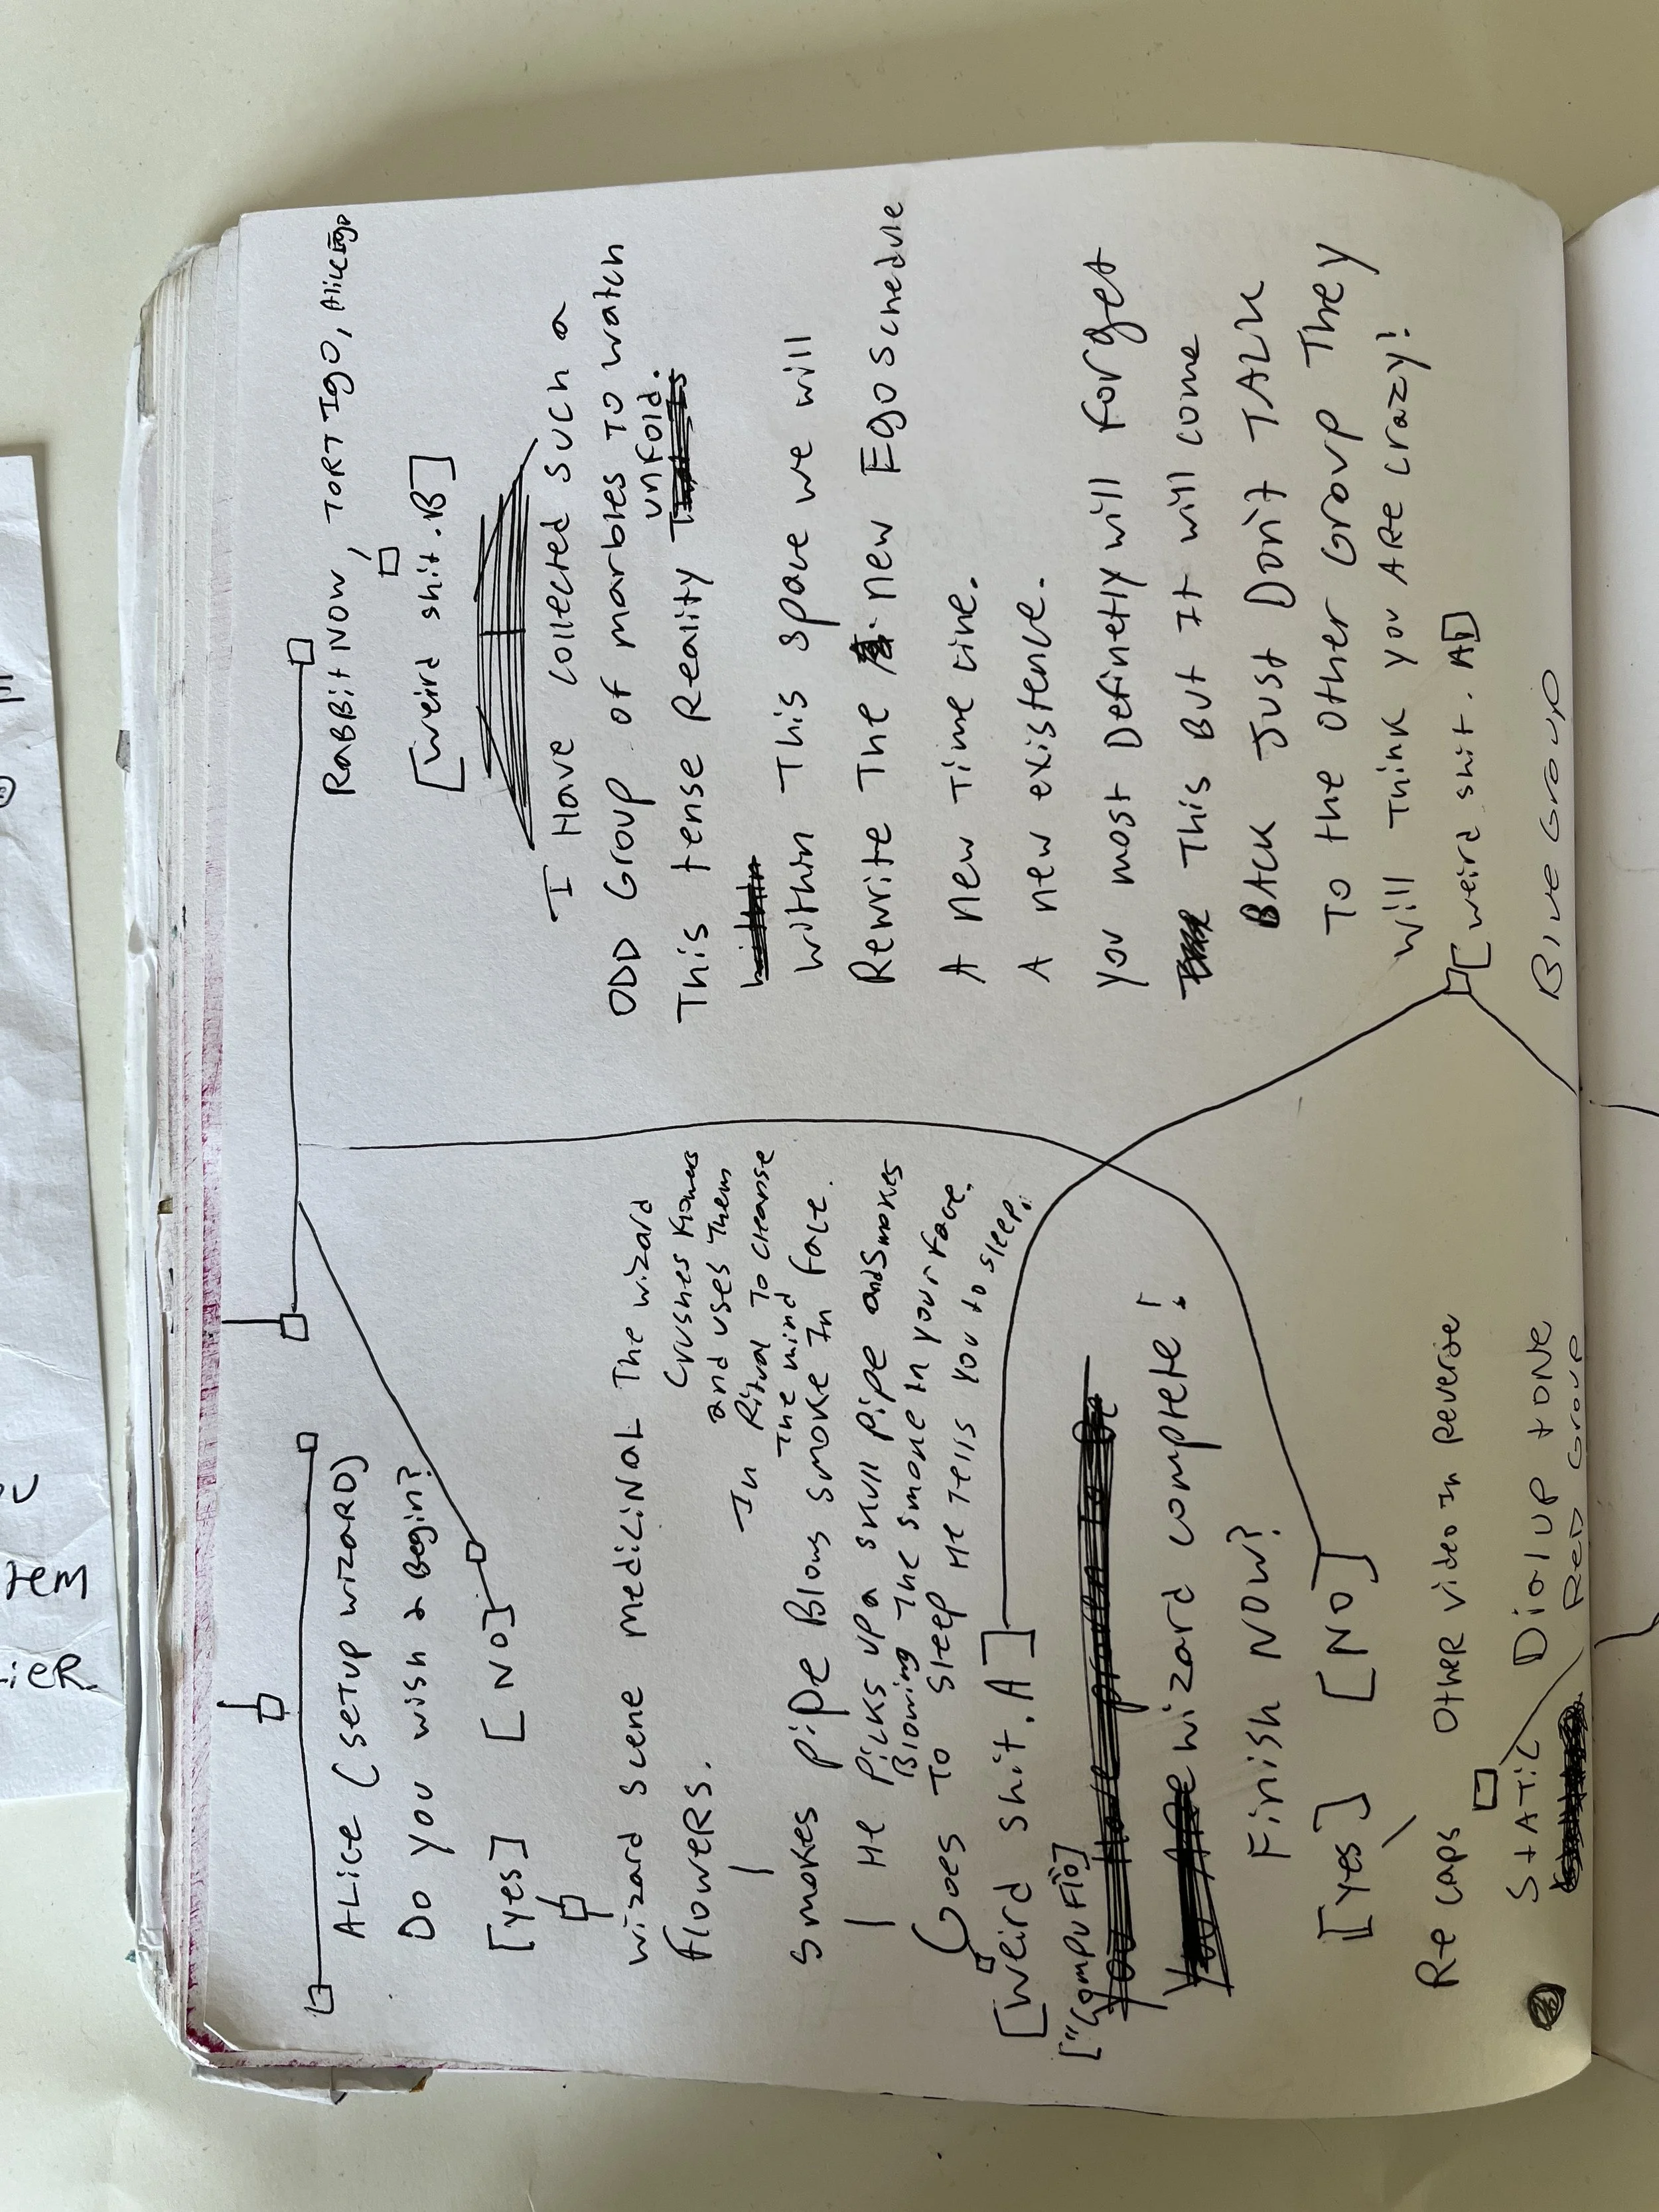 ALICE (SETUP WIZARD)
DO YOU WISH 2 Begin?
[yes] [NO]
wizard scene MediciNAL The wizard
flowers. crushes flowers
and uses them
In Ritual To cleanse
The mind
Smokes pipe Blows smoke In face.
He picks up a skull pipe and smokes
Blowing The smoke In your face.
Goes To Sleep He tells you to sleep.
[weird shit. A]
["Compuflo]
wizard complete!
Finish NOW?
[yes] [NO]
Recaps Other video In Reverse
STATIC Dialup tone
Red Group
RABBitNOW, TORTIgO,
[weird shit. B]
I Have collected such a
ODD Group of marbles To watch
This tense Reality unfold.
within This space we will
Rewrite The new Ego schedule
A new Time line.
A new existence.
you most Definetly will forget
This But It will come
BACK Just Don't TALK
To the other Group They
will Think you ARe crazy!
[weird shit. A]
Blue Group
tem
ieR